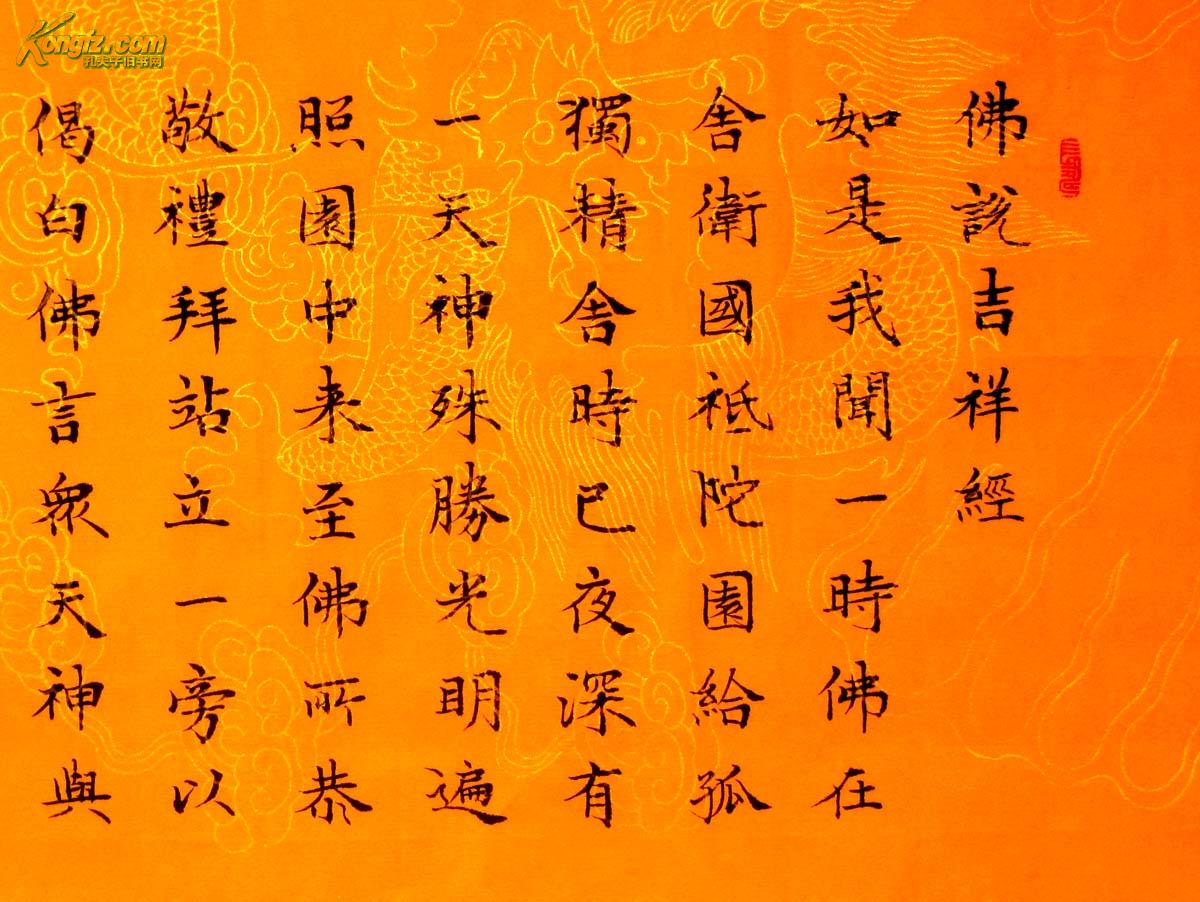 佛說吉祥經
如是我聞一時佛在
舍衛國祗陀園給孤
獨精舍時已夜深有
一天神殊勝光明遍
照園中来至佛所恭
敬禮拜站立一旁以
偈白佛言眾天神與
Kongfz.com
孔夫子旧书网